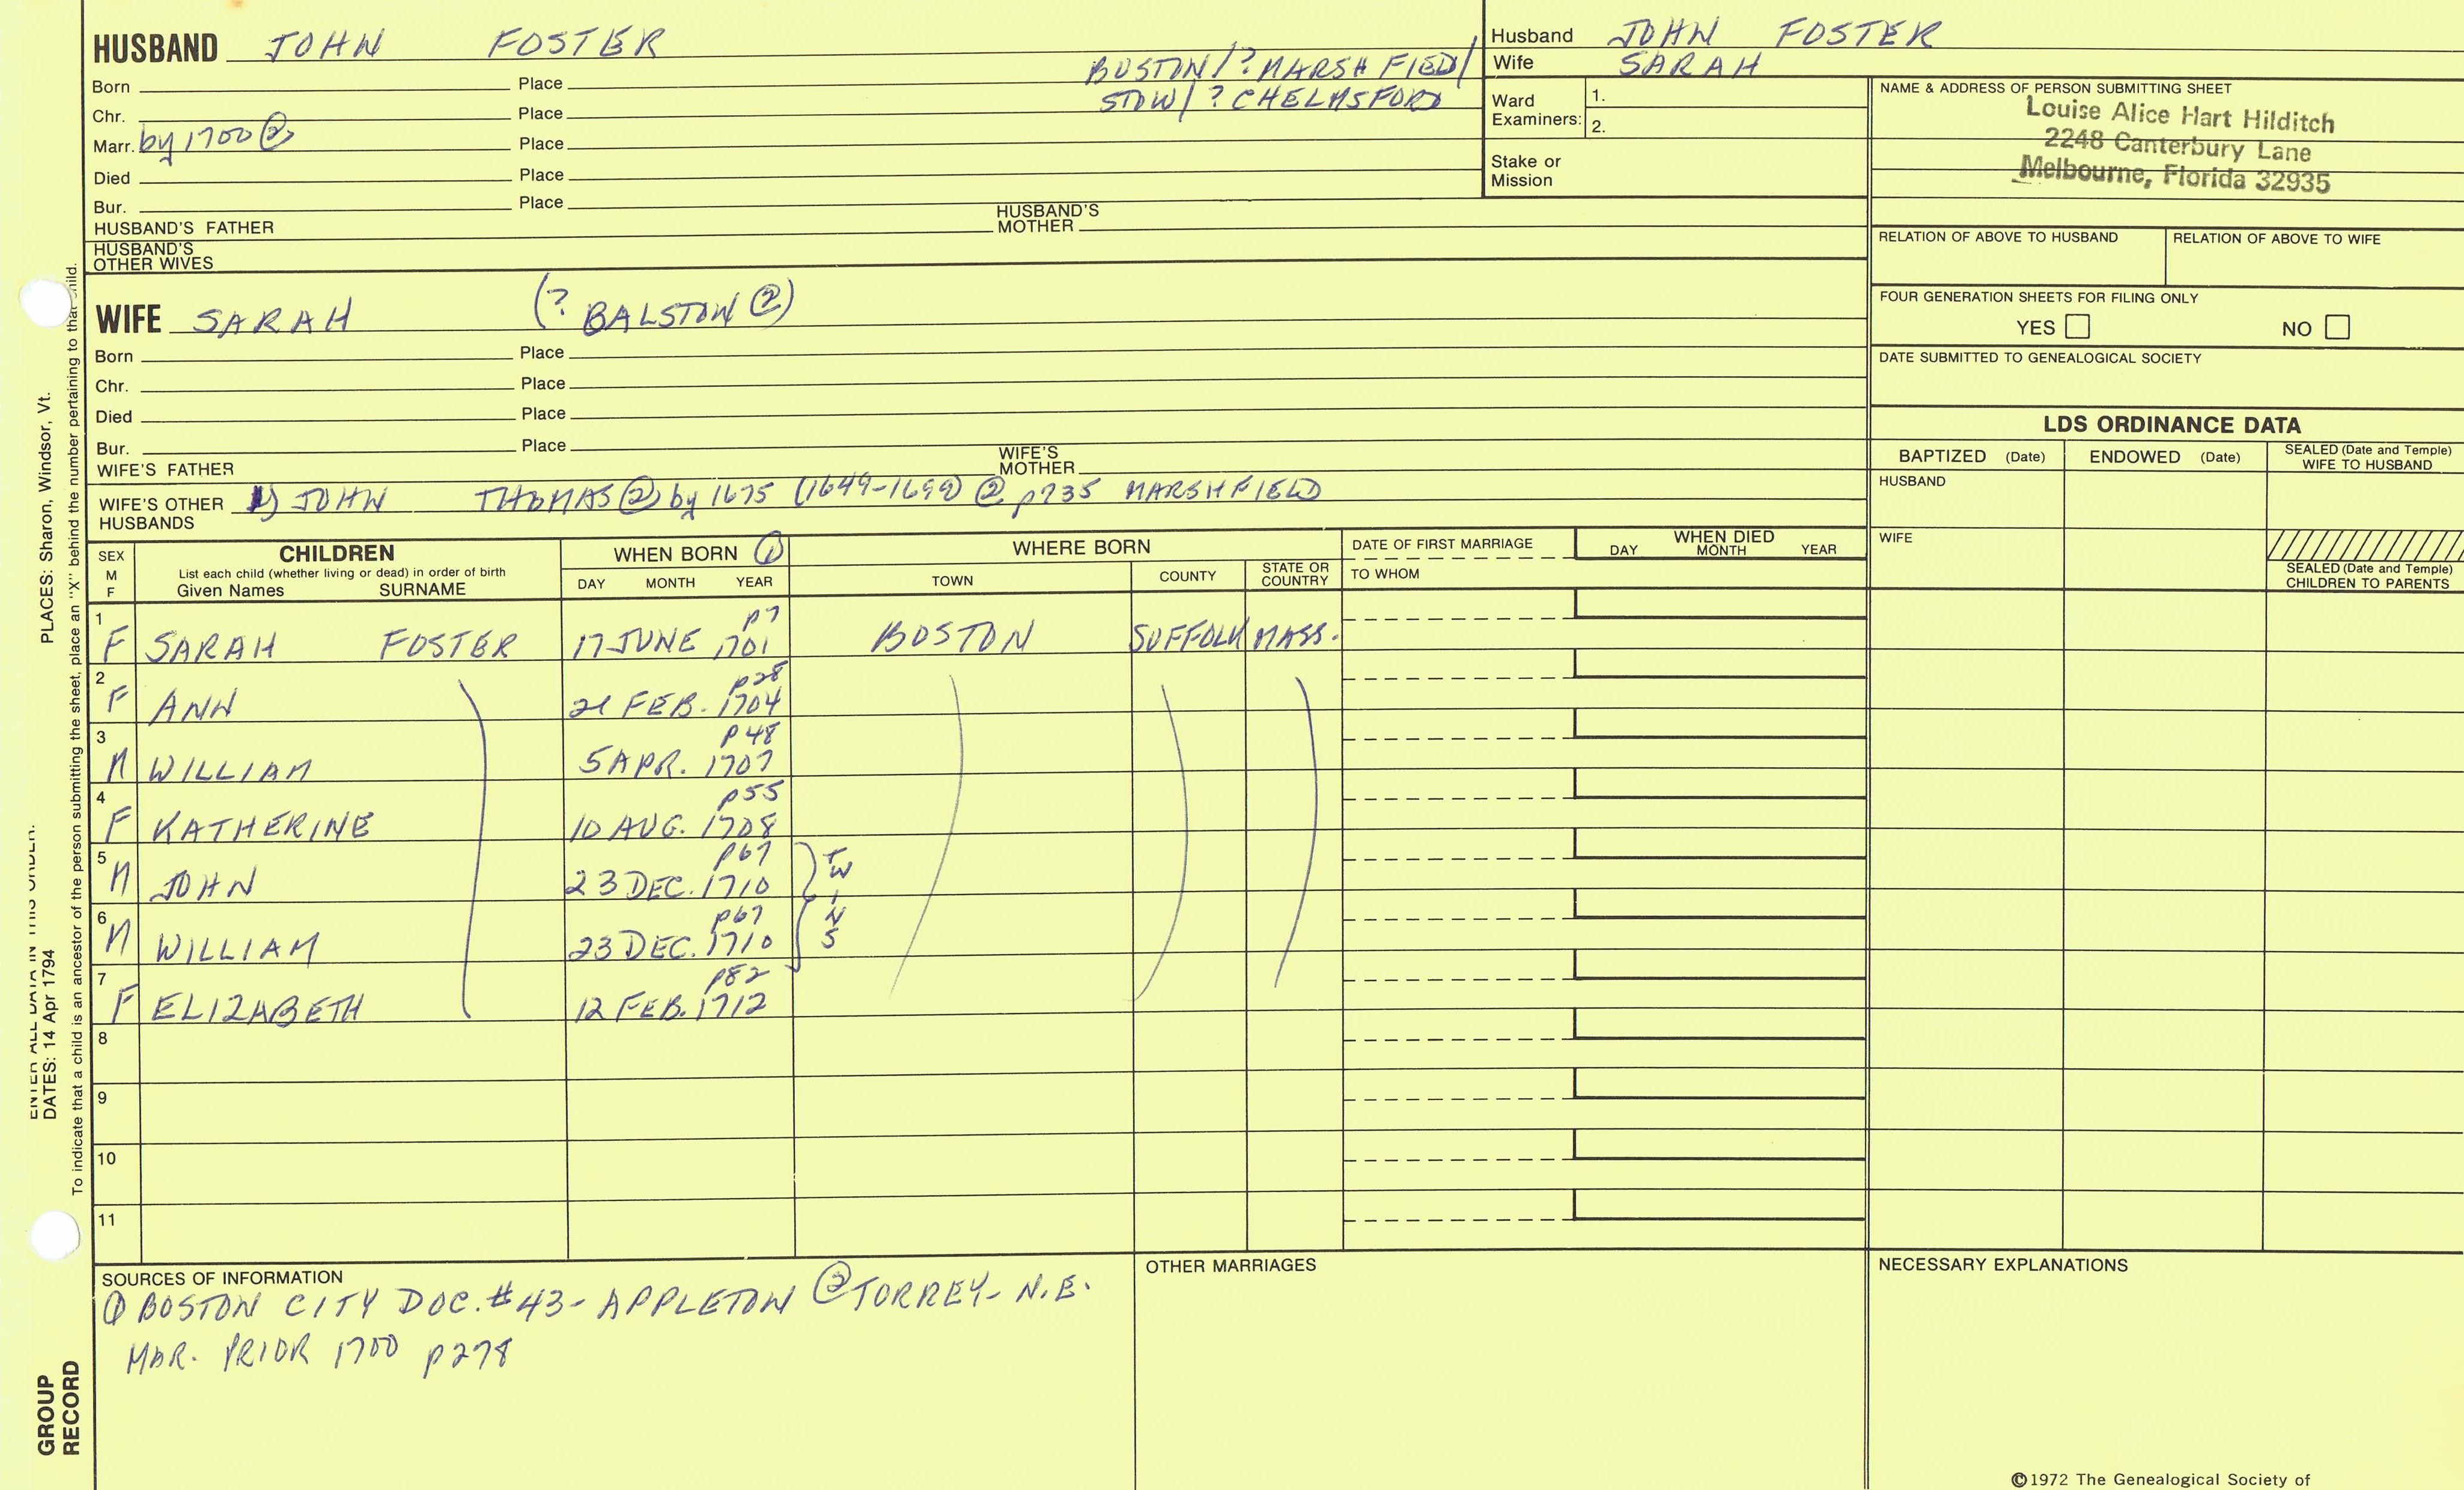 HUSBAND JOHN FOSTER
BOSTON/?MARSHFIELD/
STOW/?CHELMSFORD
Born Place
Chr. Place
Marr. by 1700 ② Place
Died Place
Bur. Place
HUSBAND'S FATHER HUSBAND'S MOTHER
HUSBAND'S OTHER WIVES
Husband JOHN FOSTER
Wife SARAH
Ward Examiners: 1.
2.
Stake or Mission
NAME & ADDRESS OF PERSON SUBMITTING SHEET
Louise Alice Hart Hilditch
2248 Canterbury Lane
Melbourne, Florida 32935
RELATION OF ABOVE TO HUSBAND RELATION OF ABOVE TO WIFE
FOUR GENERATION SHEETS FOR FILING ONLY
YES NO
DATE SUBMITTED TO GENEALOGICAL SOCIETY
WIFE SARAH (? BALSTON ②)
Born Place
Chr. Place
Died Place
Bur. Place
WIFE'S FATHER WIFE'S MOTHER
WIFE'S OTHER HUSBANDS 1) JOHN THOMAS ② by 1675 (1649-1699) ② p735 MARSHFIELD
LDS ORDINANCE DATA
BAPTIZED (Date) ENDOWED (Date) SEALED (Date and Temple) WIFE TO HUSBAND
HUSBAND
WIFE
SEALED (Date and Temple) CHILDREN TO PARENTS
SEX M F
CHILDREN
List each child (whether living or dead) in order of birth
Given Names SURNAME
WHEN BORN ①
DAY MONTH YEAR
WHERE BORN
TOWN COUNTY STATE OR COUNTRY
DATE OF FIRST MARRIAGE
TO WHOM
WHEN DIED
DAY MONTH YEAR
p7
1 F SARAH FOSTER 17 JUNE 1701 BOSTON SUFFOLK MASS.
p28
2 F ANN 21 FEB. 1704
p48
3 M WILLIAM 5 APR. 1707
p55
4 F KATHERINE 10 AUG. 1708
p67
5 M JOHN 23 DEC. 1710 TWINS
p67
6 M WILLIAM 23 DEC. 1710
p82
7 F ELIZABETH 12 FEB. 1712
8
9
10
11
SOURCES OF INFORMATION
① BOSTON CITY DOC. #43 - APPLETON ② TORREY - N.E.
MAR. PRIOR 1700 p278
OTHER MARRIAGES
NECESSARY EXPLANATIONS
©1972 The Genealogical Society of
PLACES: Sharon, Windsor, Vt.
DATES: 14 Apr 1794
ENTER ALL DATA IN THIS ORDER:
To indicate that a child is an ancestor of the person submitting the sheet, place an "X" behind the number pertaining to that child.
GROUP
RECORD